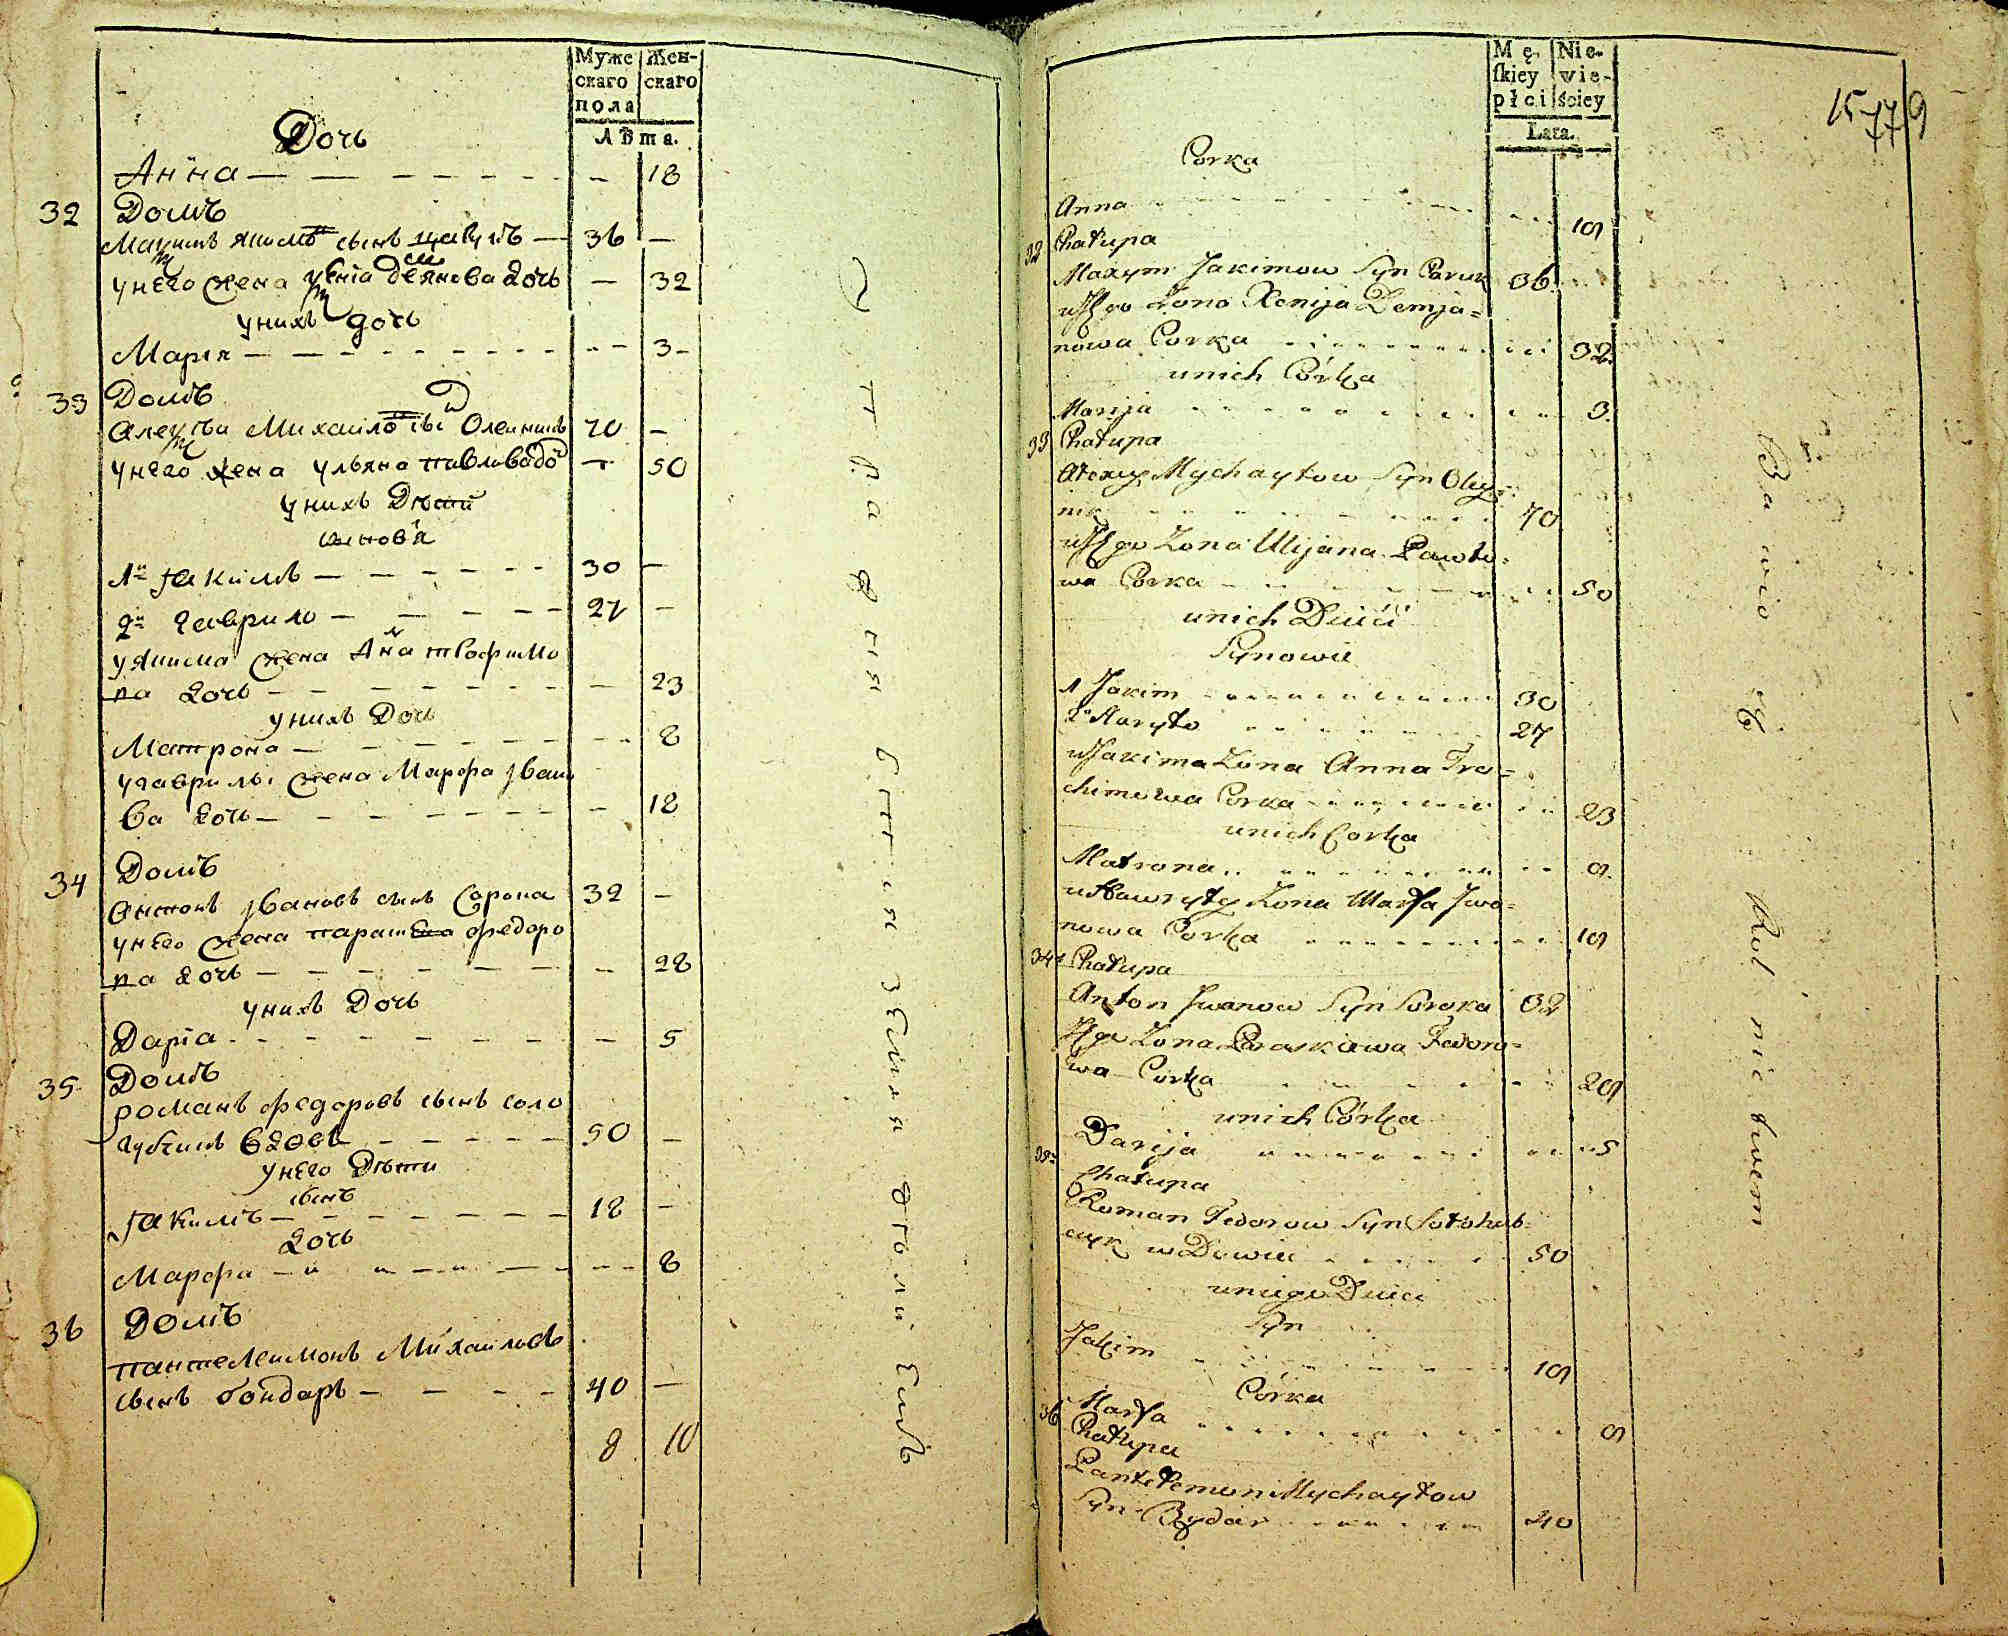 Муже
скаго
пола
Жен-
скаго
Лѣта.
Дочь
Анна — — — — — — 18
32 Домъ
сынъ — 36 —
у него жена дочь — 32
у нихъ дочь
Марія — — — — — 3 —
33 Домъ
Михаило 70 —
у него жена Ульяна павловадо — 50
у нихъ Дѣти
сыновя
1й Іакимъ — — — — 30 —
2й Гаврило — — — — 27 —
у Якима жена Анна трофимо
ва дочь — — — — — 23
у нихъ Доч
Матрона — — — — — 8
у гаврилы жена Марфа Iвано
ва дочь — — — — — 18
34 Домъ
Антонъ Iвановъ сынъ Сорока 32 —
у него жена параскева федоро
ва дочь — — — — — 28
у нихъ Дочь
Дарїа — — — — — 5
35 Домъ
романъ федоровъ сынъ соло
вдовъ — — — — 50 —
у него Дѣти
сынъ
Іакимъ — — — — — 18 —
дочь
Марфа — — — — — 8
36 Домъ
пантелеимонъ Михаиловъ
сынъ бондаръ — — — 40 —
8 10
Mę-
ſkiey
płci
Nie-
wie-
ściey
Lata.
15 77 9
Corka
Anna 18
32 Chałupa
Maxym Jakimow Syn 36
Żona Xenija Demja=
nowa Corka 32
unich Córka
Marija 3
33 Chałupa
Alexy Mychayłow Syn Oley=
nik 70
Żona Ulijana Pawło=
wa Corka 50
unich Dzieci
Synowie
1 Jakim 30
2 27
u Jakima Żona Anna Tro=
chimowa Corka 23
unich Corka
Matrona 8
u Hawryły Żona Marfa Jwa=
nowa Corka 18
34 Chałupa
Anton Jwanow Syn Soroka 32
Żona Paraskiewa Fedoro=
wa Corka 28
unich Córka
Darija 5
35 Chałupa
Roman Fedorow Syn Sołohub=
czyk w Dowiec 50
uniego Dzieci
Syn
Jakim 18
Córka
Marfa 8
36 Chałupa
Pantelemon Mychayłow
Syn 40